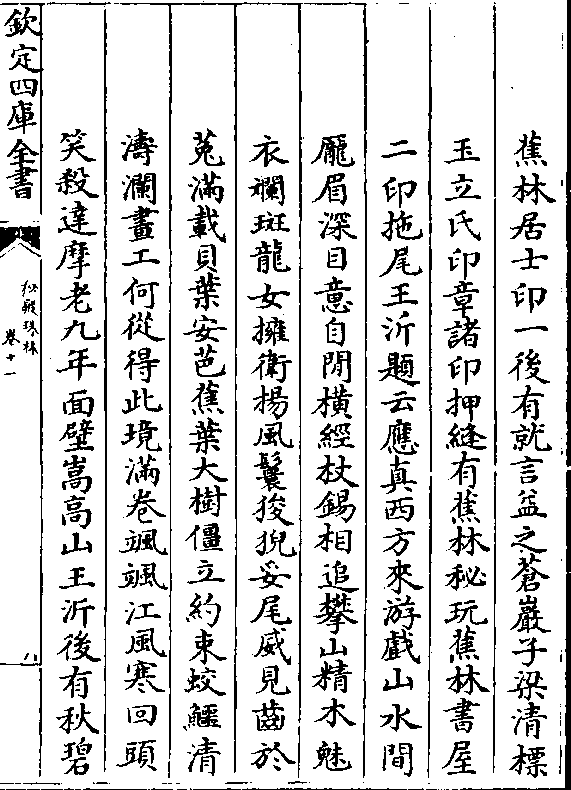 蕉林居士印一後有就言益之蒼巖子梁清標
玉立氏印章諸印押縫有蕉林秘玩蕉林書屋
二印拖尾王沂題云應真西方來游戲山水間
厖眉深目意自閒橫經杖錫相追攀山精木魅
衣斕斑龍女擁衛揚風鬟狻猊妥尾威見齒於
菟滿載貝葉安芭蕉葉大樹僵立約束蛟鱷清
濤瀾畫工何從得此境滿卷颯颯江風寒回頭
笑殺達摩老九年面壁嵩高山王沂後有秋碧
欽定四庫全書
秘殿珠林
卷十一
八